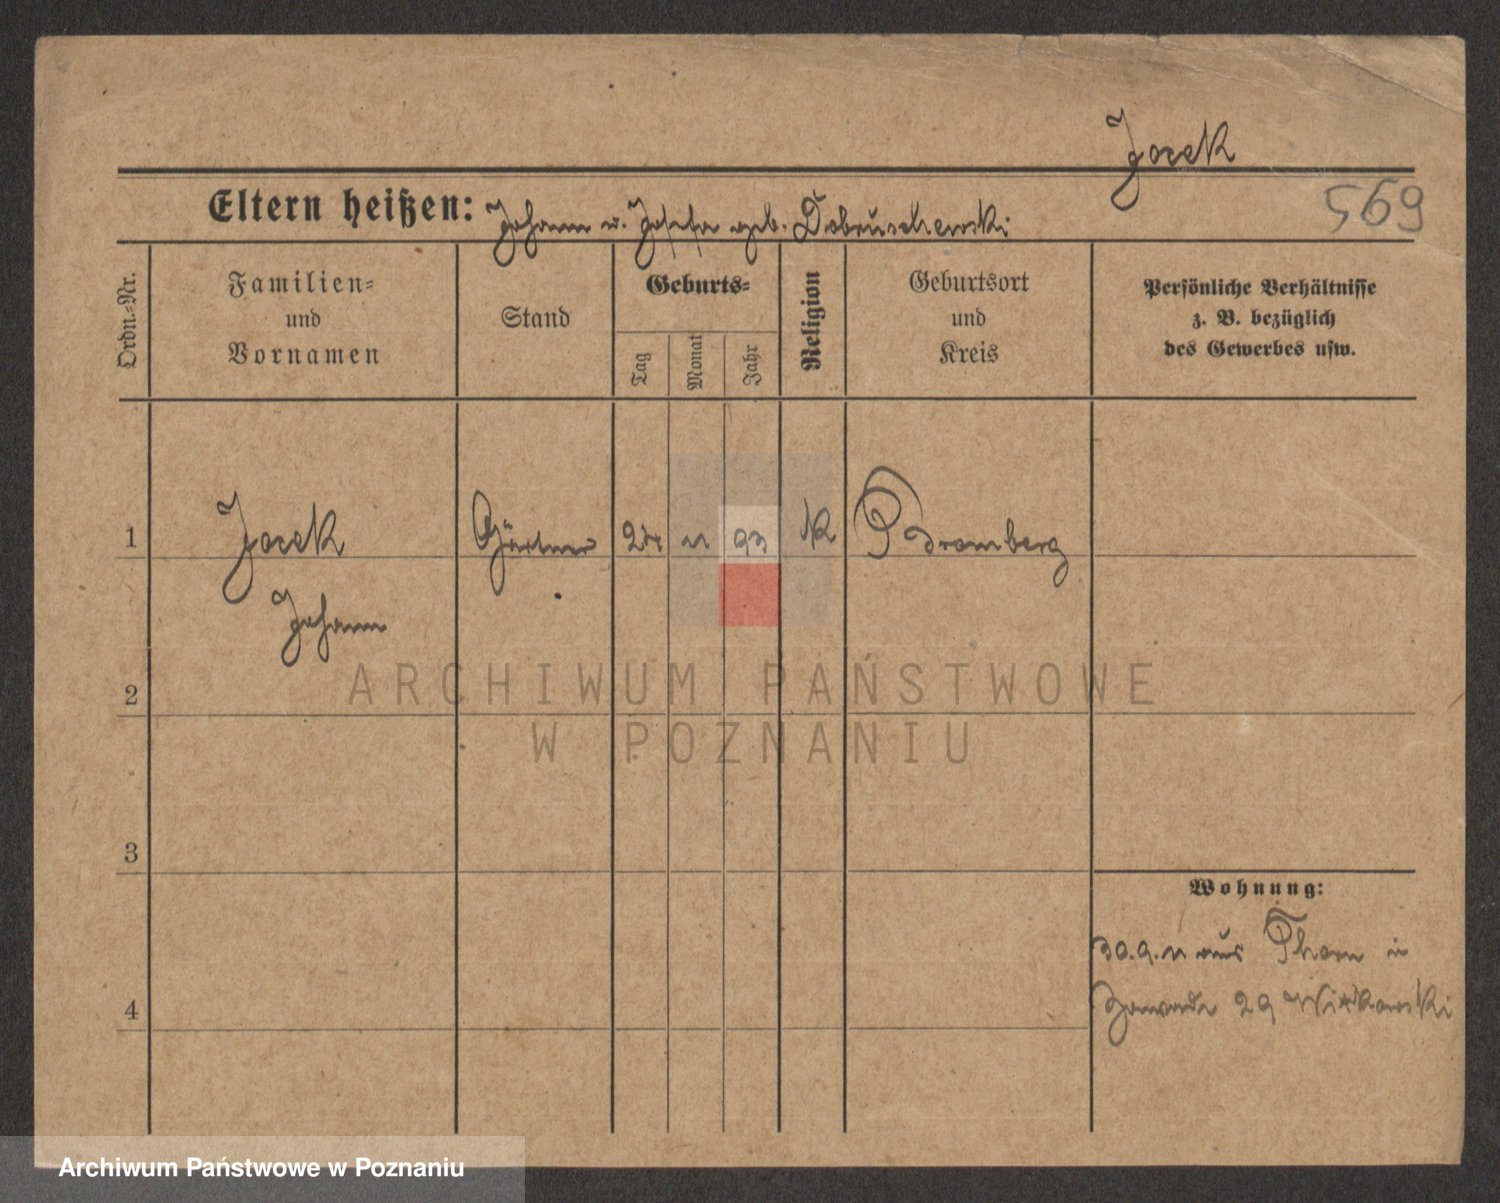 Jocek
569
Eltern heißen: Johann u. Josefa geb. Dobruschewski
Ordn.-Nr.
Familien-
und
Vornamen
Stand
Geburts-
Tag
Monat
Jahr
Religion
Geburtsort
und
Kreis
Persönliche Verhältnisse
z. B. bezüglich
des Gewerbes usw.
1 Jocek Gärtner 93 K Bromberg
Johann
2
3
4
Wohnung:
30.9.11 aus Thorn in
Zawade 29
ARCHIWUM PAŃSTWOWE
W POZNANIU
Archiwum Państwowe w Poznaniu